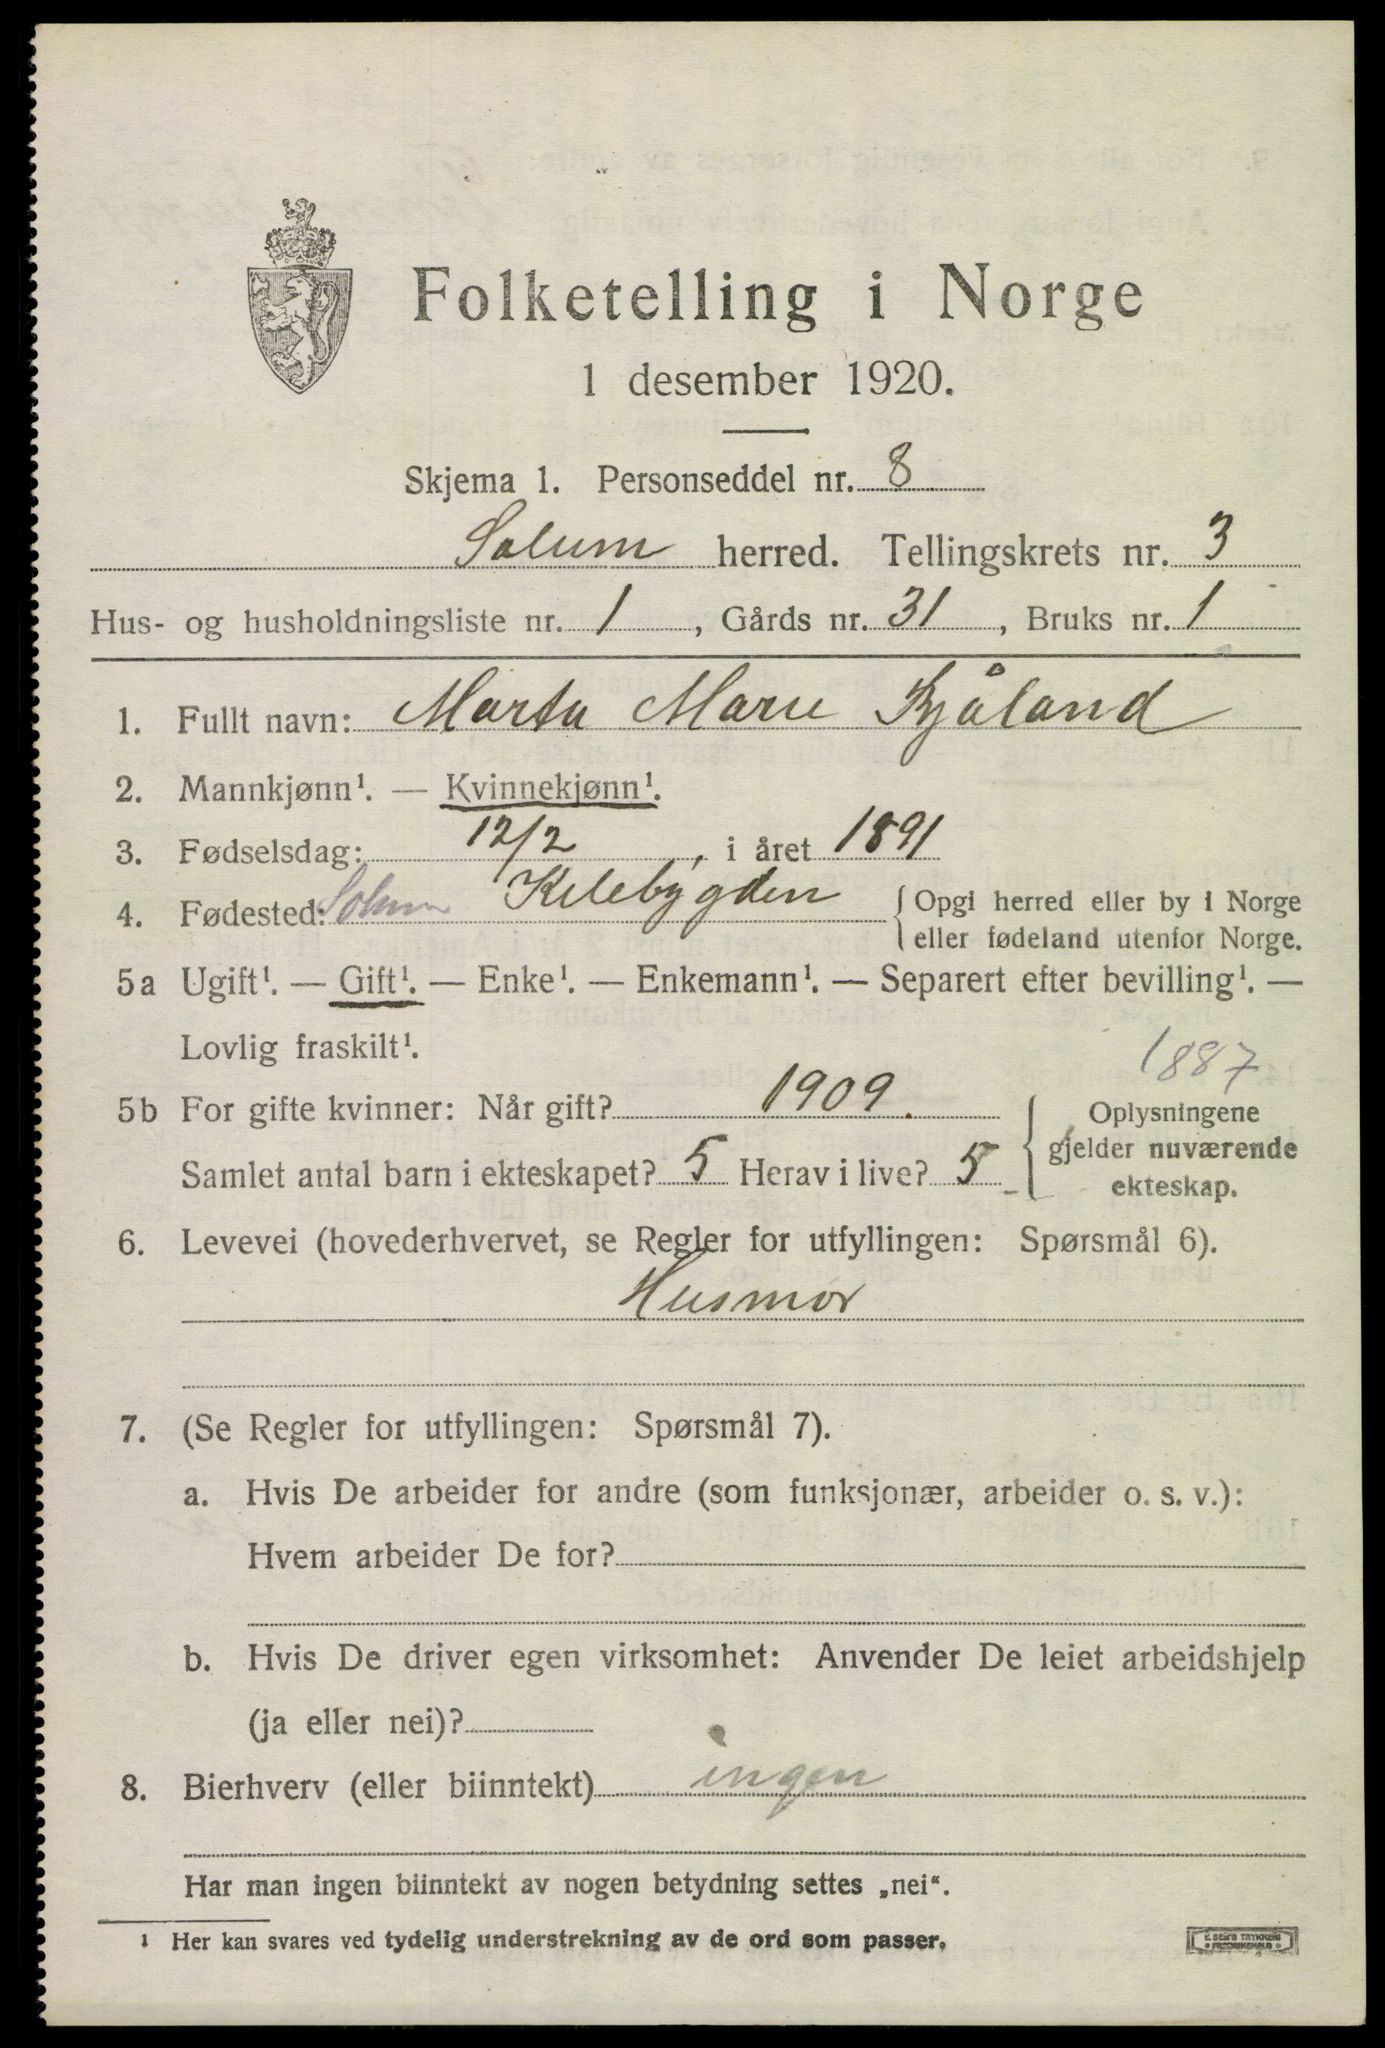 Folketelling i Norge
1 desember 1920.
Skjema 1. Personseddel nr. 8
Solum herred. Tellingskrets nr. 3
Hus- og husholdningsliste nr. 1, Gårds nr. 31, Bruks nr. 1
1. Fullt navn: Marta Marie Kjåland
2. Mannkjønn¹. — Kvinnekjønn¹.
3. Fødselsdag: 12/2, i året 1891
4. Fødested: Solum Kilebygden { Opgi herred eller by i Norge
eller fødeland utenfor Norge.
5a Ugift¹. — Gift¹. — Enke¹. — Enkemann¹. — Separert efter bevilling¹. —
Lovlig fraskilt¹.
1887
5b For gifte kvinner: Når gift? 1909. { Oplysningene
gjelder nuværende
ekteskap.
Samlet antal barn i ekteskapet? 5 Herav i live? 5
6. Levevei (hovederhvervet, se Regler for utfyllingen: Spørsmål 6).
Husmor
7. (Se Regler for utfyllingen: Spørsmål 7).
a. Hvis De arbeider for andre (som funksjonær, arbeider o. s. v.):
Hvem arbeider De for?
b. Hvis De driver egen virksomhet: Anvender De leiet arbeidshjelp
(ja eller nei)?
8. Bierhverv (eller biinntekt) ingen
Har man ingen biinntekt av nogen betydning settes „nei“.
¹ Her kan svares ved tydelig understrekning av de ord som passer.